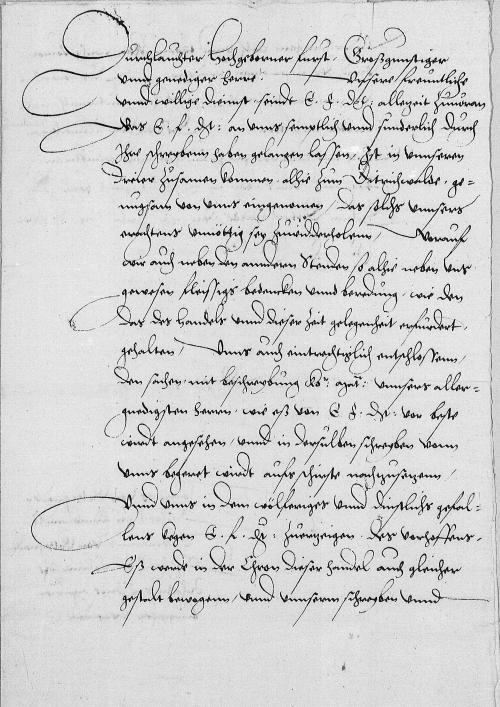 Durchlauchter Hochgeborner furst. Großgunstiger
vnnd genediger herre. Vnsere freuntliche
vnnd willige dienst seindt E. F. Dt: allezeit zuuoran
Was E. f. Dt: an vnns semptlich vnnd sunderlich durch
Ihre schreybenn haben gelangen lassen, Ist in vnnseren
dreier zusamen kommen alhie zum ge=
nugsam von vnns eingenomen, das solchs vnnsers
erachtens vnnöttig sey zuwidderholenn, Worauf
wir auch neben den anndern Stenden so alhie neben vns
gewesen fleissigs bedencken vnnd beredung, wie den
das des handels vnnd dieser Zeit gelegenheit erfurdert,
gehalten, Vnns auch eintrechtiglich entschlossenn,
den sachen mit beschreybung Ko: vnnsers aller=
gnedigsten herren, wie eß von E. F. Dt: vor beste
wirdt angesehen, vnnd in derselben schreyben vonn
vnns begeret wirdt aufs schirste nachzusetzenn,
Vnnd vnns in dem vnnd dinstlichs gefal=
lens kegen E. f. Dt: zuerzeigen. Des vorhoffens.
Eß werde in der Chron dieser handel auch gleicher
gestalt bewogenn, vnnd vnnserm schreyben vnnd